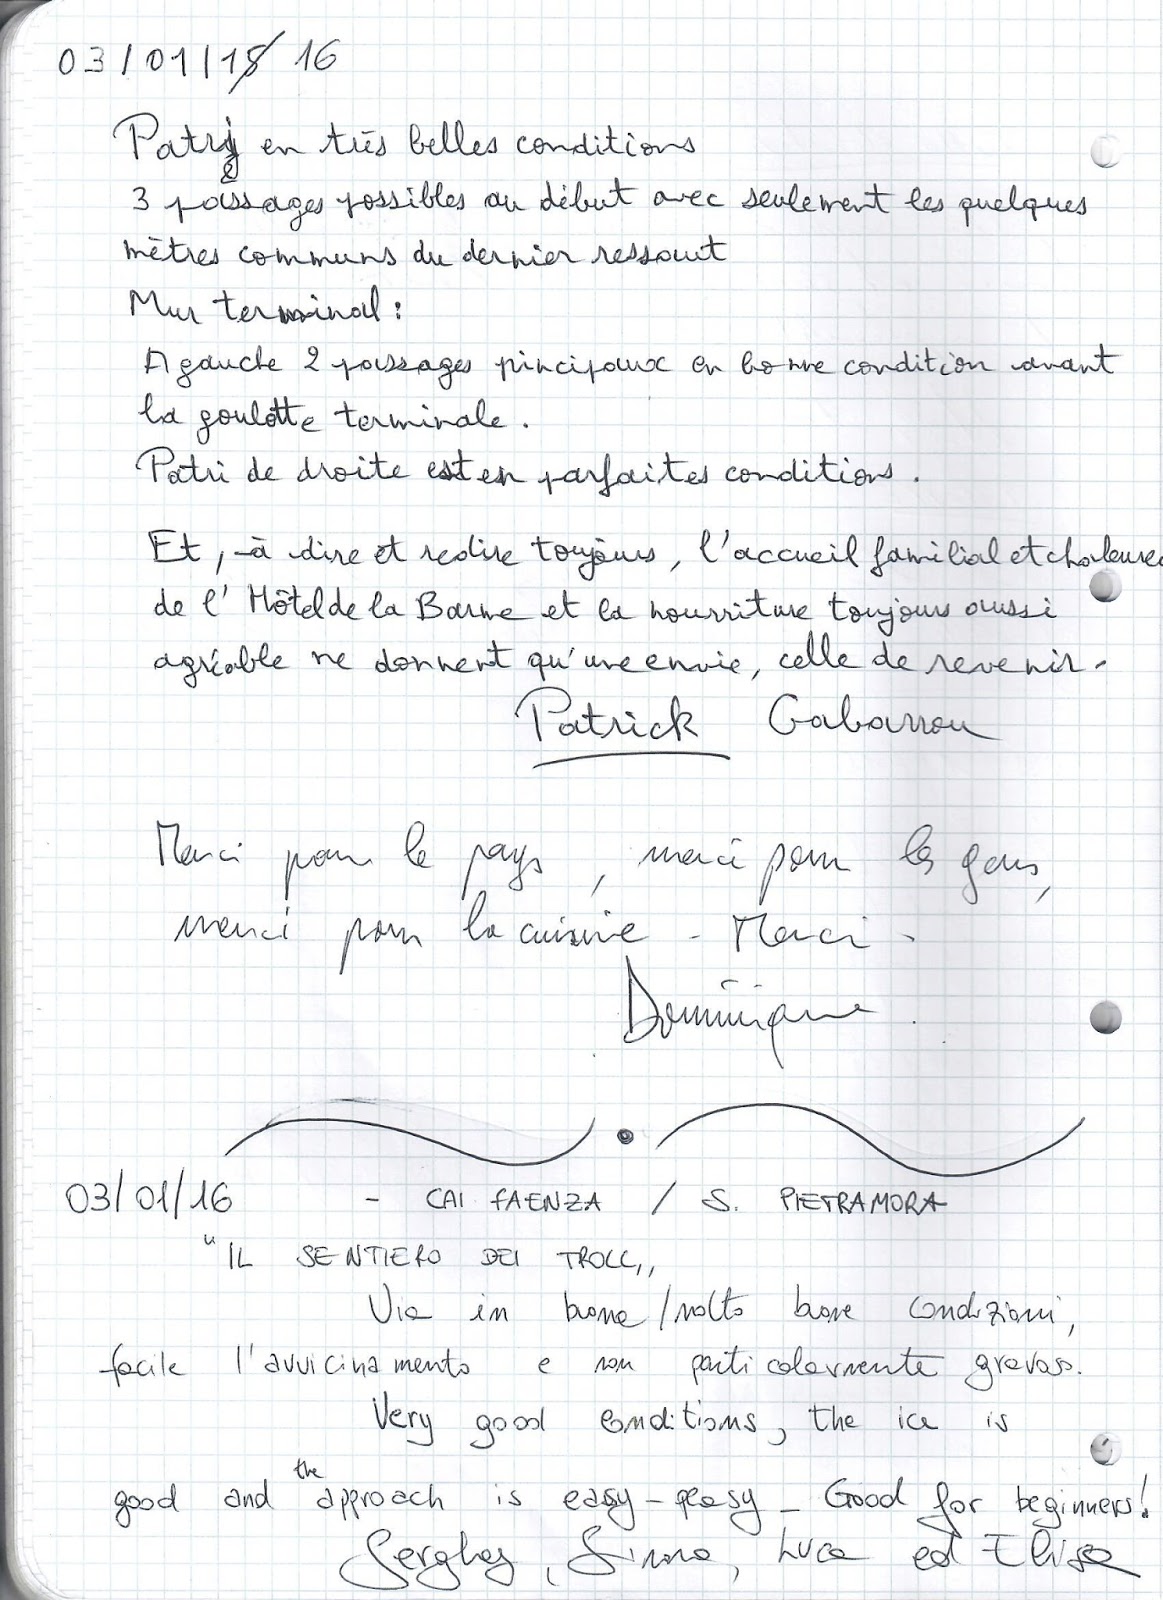 03/01/15 16
Patri en très belles conditions
3 passages possibles au début avec seulement les quelques
mètres communs du dernier ressaut
Mur terminal :
A gauche 2 passages pincipaux en bonne condition avant
la goulotte terminale.
Patri de droite est en parfaites conditions.
Et, à dire et redire toujours, l'accueil familial et chaleureu
de l'Hôtel de la Barme et la nourriture toujours aussi
agréable ne donnent qu'une envie, celle de revenir.
Patrick Gabarrou
Merci pour le pays, merci pour les gens,
merci pour la cuisine - Merci -
Dominique
03/01/16 - CAI FAENZA / S. PIETRAMORA
"IL SENTIERO DEI TROLL,,
Via in buone/molto buone condizioni,
facile l'avvicinamento e non particolarmente gravoso.
Very good conditions, the ice is
good and the approach is easy-peasy - Good for beginners!
Serghey, Simone, Luca ed Elisa